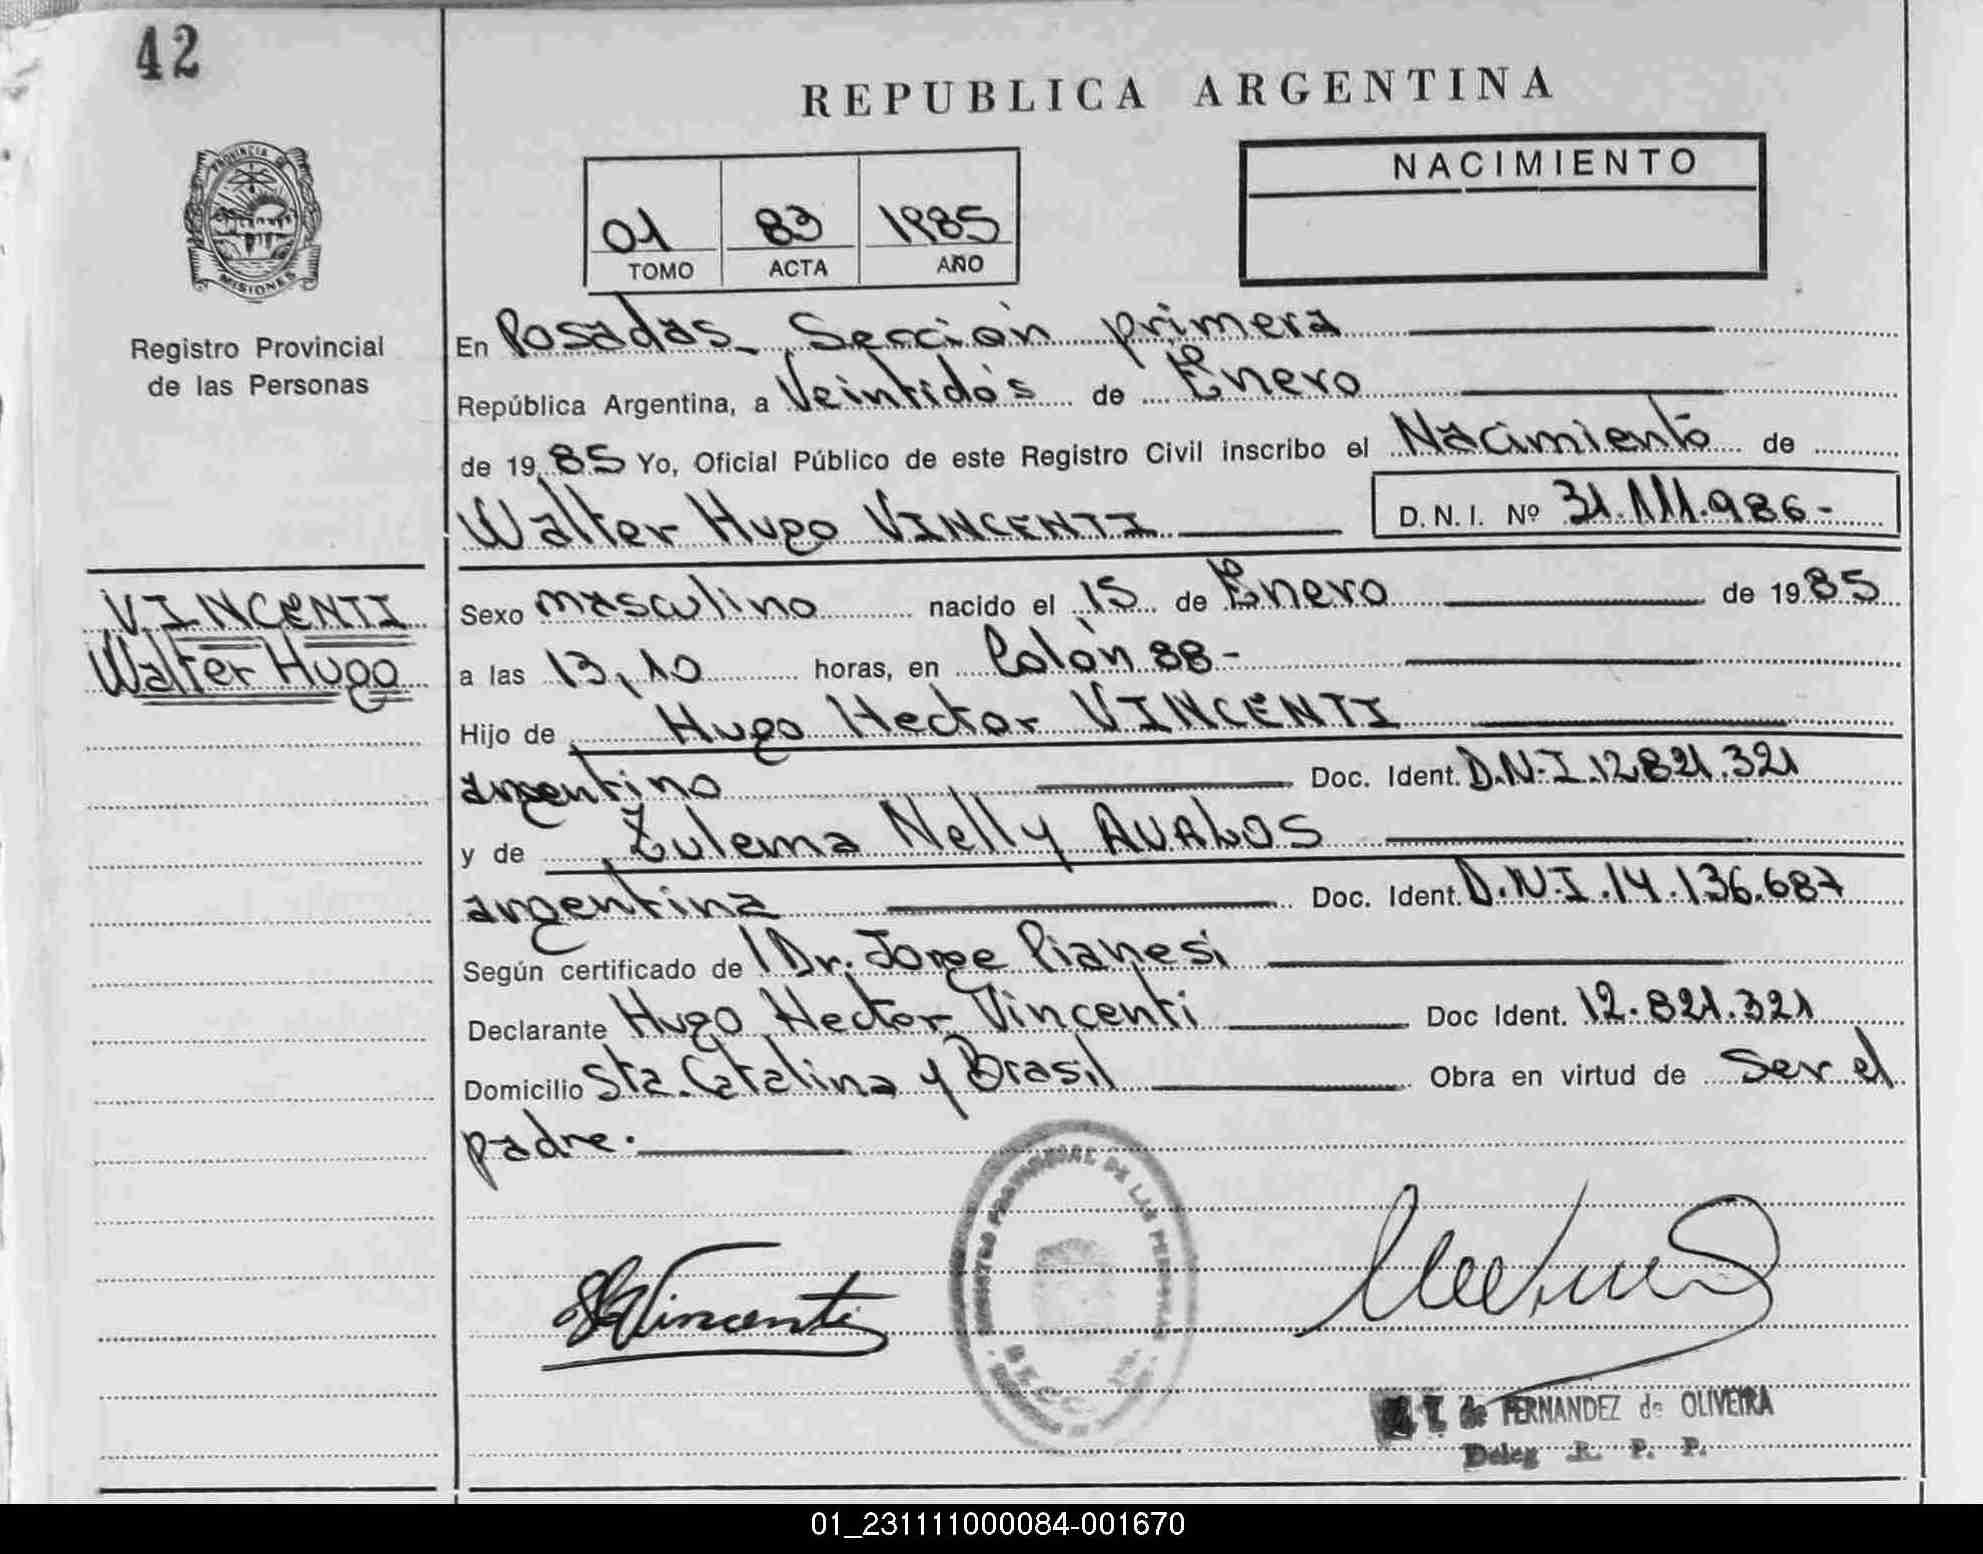 42
REPUBLICA ARGENTINA
PROVINCIA DE
MISIONES
Registro Provincial
de las Personas
01 83 1985
TOMO ACTA AÑO
NACIMIENTO
En Posadas - Sección primera
República Argentina, a Veintidós de Enero
de 1985 Yo, Oficial Público de este Registro Civil inscribo el Nacimiento de
Walter Hugo VINCENTI D.N.I. Nº 31.111.986-
VINCENTI
Walter Hugo
Sexo masculino nacido el 15 de Enero de 1985
a las 13,10 horas, en Colón 88-
Hijo de Hugo Hector VINCENTI
argentino Doc. Ident. D.N.I. 12.821.321
y de Zulema Nelly AVALOS
argentina Doc. Ident. D.N.I. 14.136.687
Según certificado de Dr. Jorge Pianesi
Declarante Hugo Hector Vincenti Doc Ident. 12.821.321
Domicilio Sta. Catalina y Brasil Obra en virtud de Ser el
padre.
PROVINCIAL DE LAS PERSONAS
Vincenti
de FERNANDEZ de OLIVEIRA
Deleg R. P. P.
01_231111000084-001670